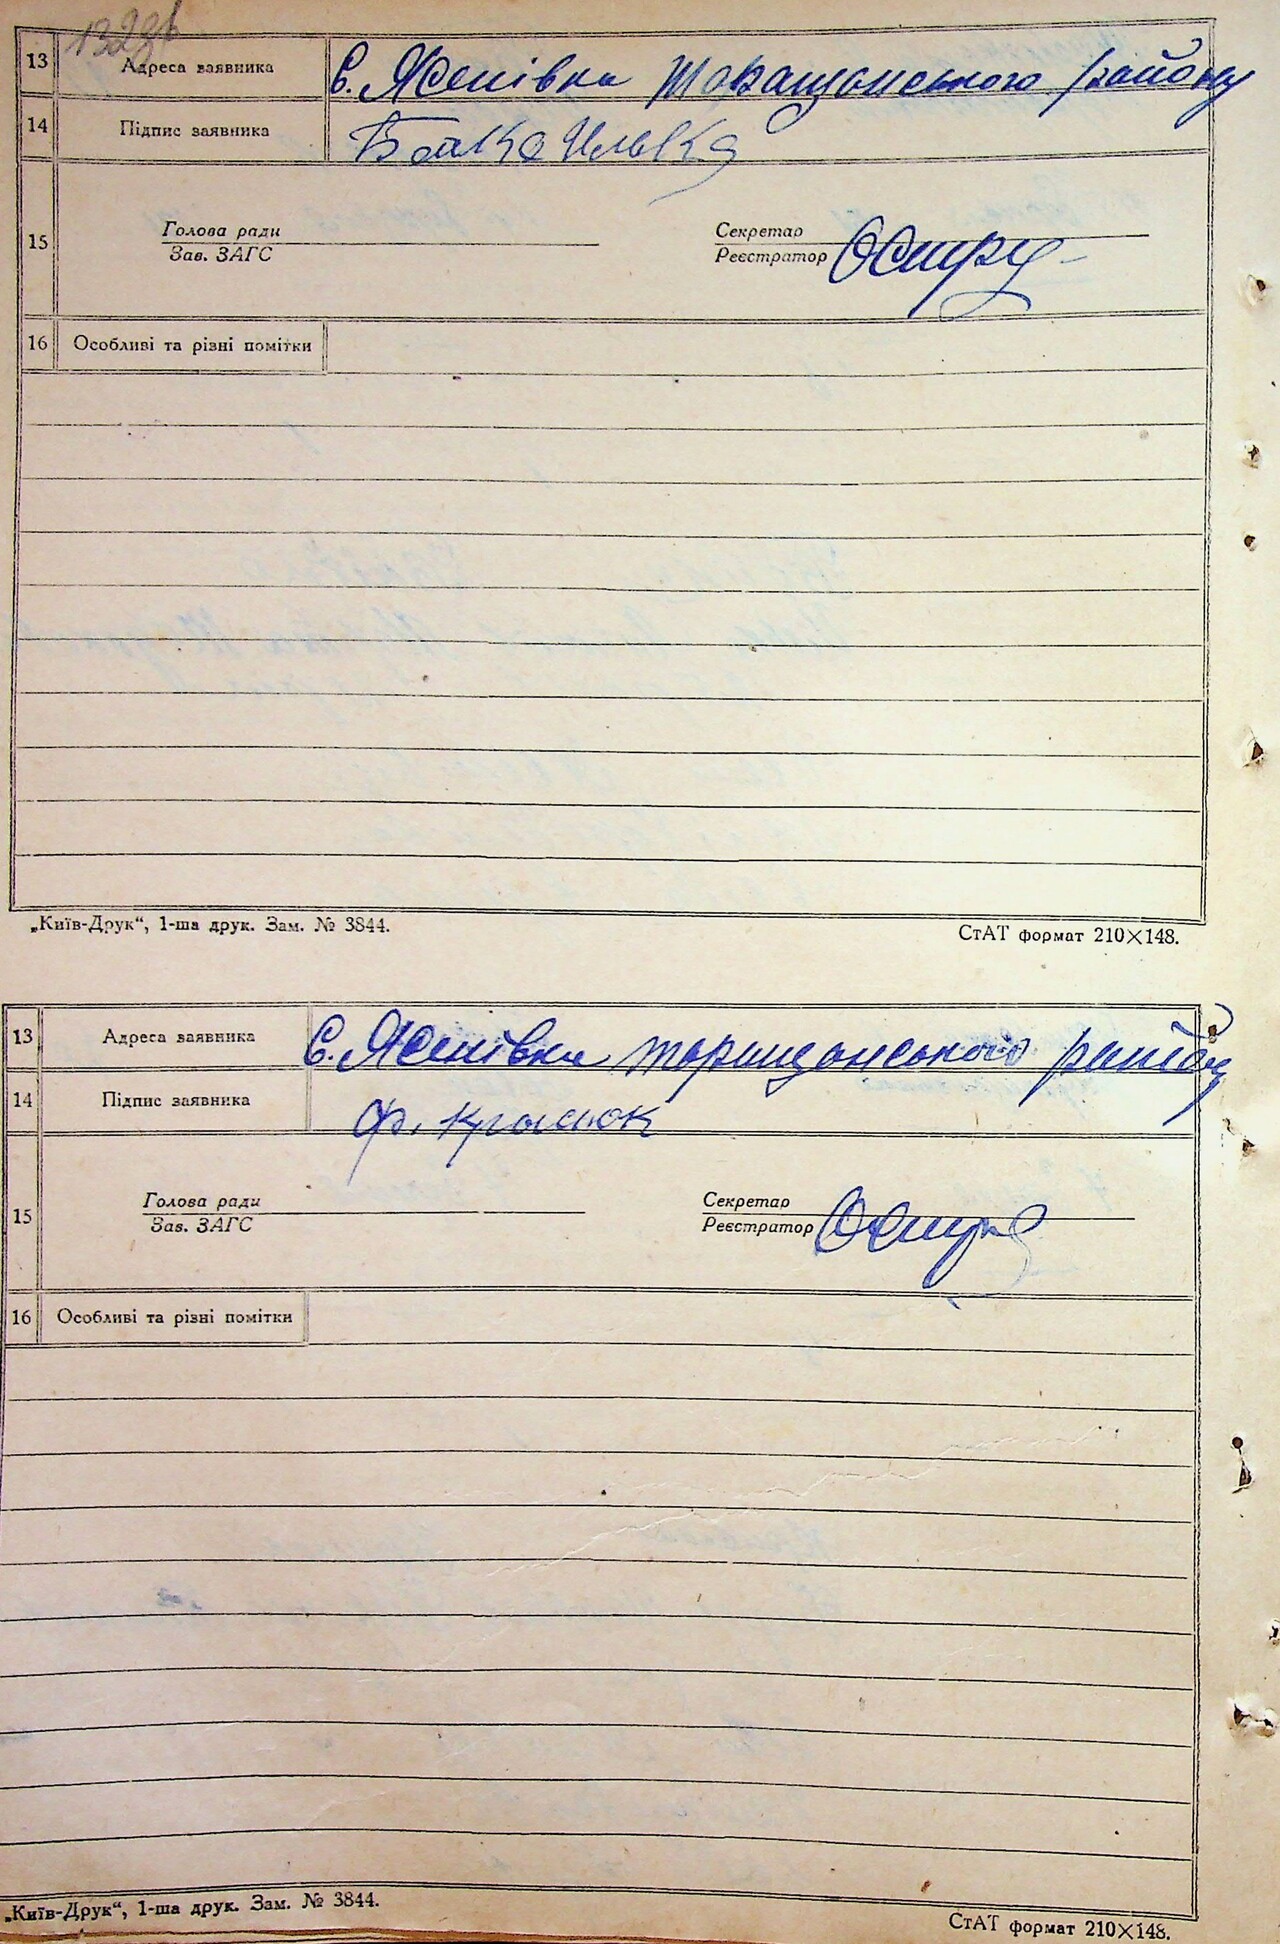 132зв
13 Адреса заявника с. Ясенівка Таращанського району
14 Підпис заявника
15 Голова ради Секретар
Зав. ЗАГС Реєстратор
16 Особливі та різні помітки
„Київ-Друк“, 1-ша друк. Зам. № 3844.
СтАТ формат 210×148.
13 Адреса заявника с. Ясенівка Таращанського району
14 Підпис заявника
15 Голова ради Секретар
Зав. ЗАГС Реєстратор
16 Особливі та різні помітки
„Київ-Друк“, 1-ша друк. Зам. № 3844.
СтАТ формат 210×148.